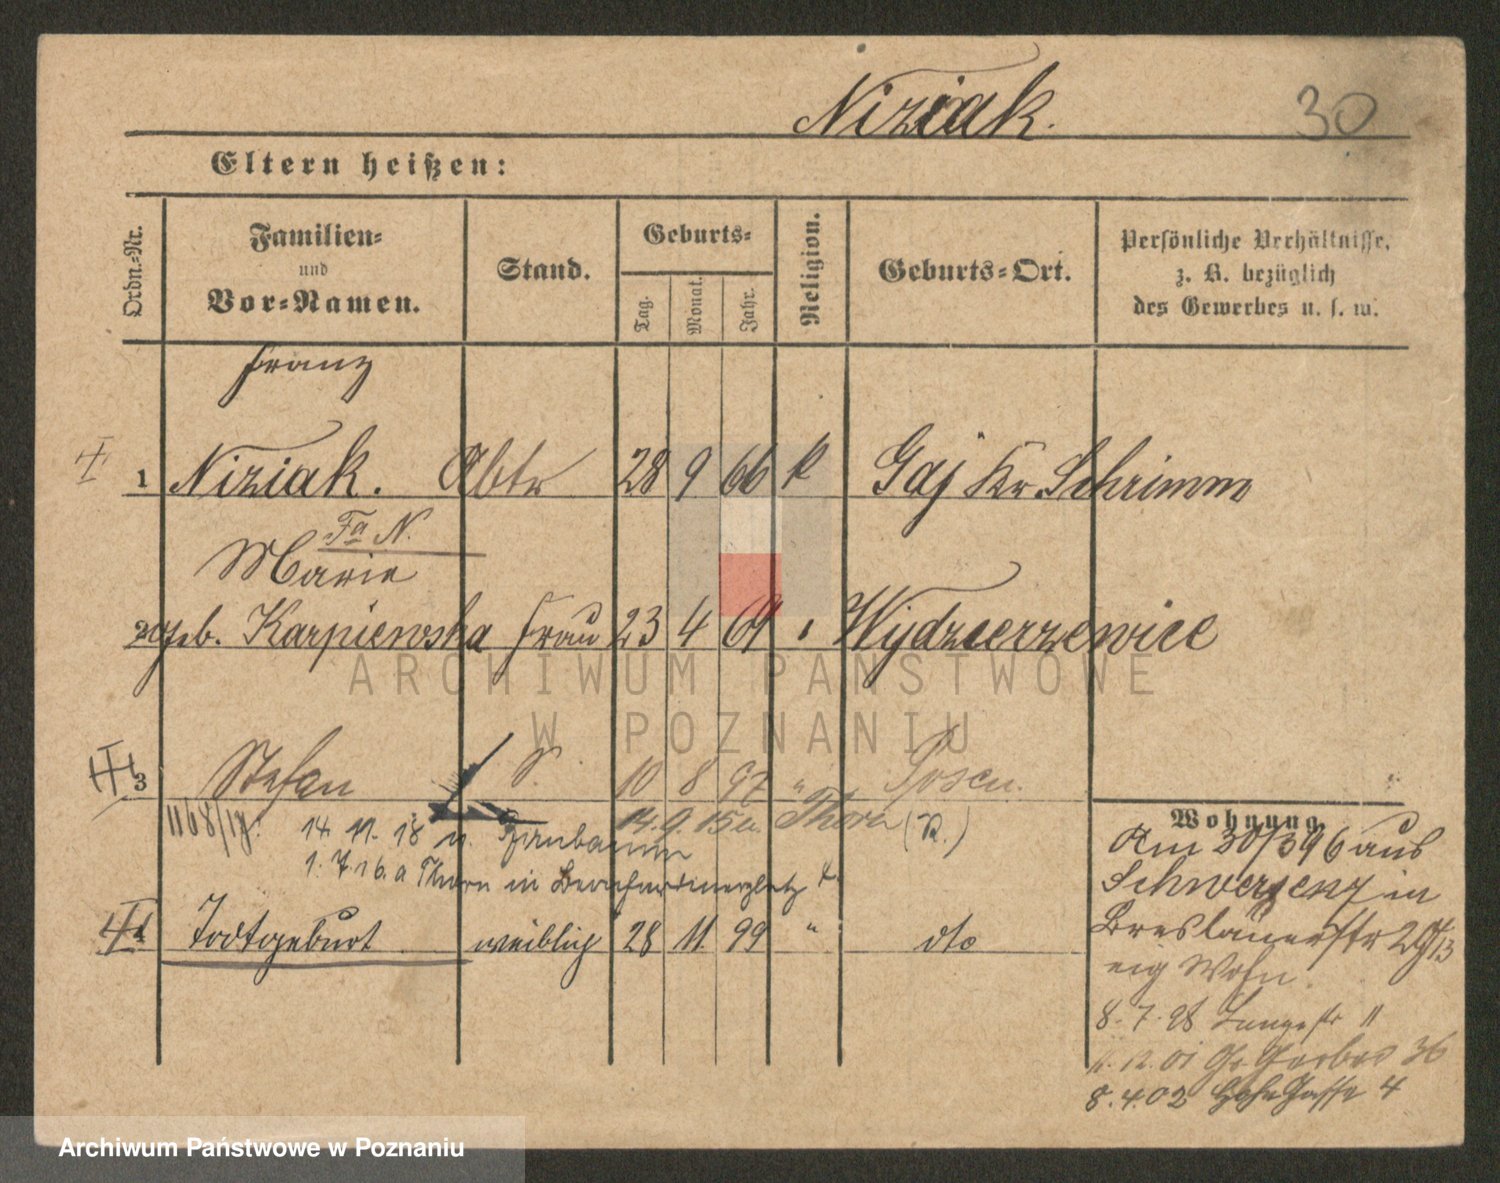 Niziak. 30
Eltern heißen:
Ordn.-Nr.
Familien-
und
Vor-Namen.
Stand.
Geburts-
Tag.
Monat.
Jahr.
Religion.
Geburts-Ort.
Persönliche Verhältnisse,
z. B. bezüglich
des Gewerbes u. s. w.
Franz
1 Niziak. Abtr 28 9 66 k Gaj Kr. Schrimm
Fa N.
Marie
2 geb. Karpiewska Frau 23 4 69 Wydzierzewice
ARCHIWUM PAŃSTWOWE
W POZNANIU
3 Stefan S. 10 8 97 " Posen.
1168/19: 14. 11. 18 n. Birnbaum 14. 9. 15 Thorn (R.)
1. 7. 16. a Thorn in
4 Todtgeburt weiblich 28 11. 99 " dto
Wohnung.
Am 30/3 96 aus
Schwersenz in
Breslauerstr
eig Wohn.
8. 7. 98 Langestr 11
12. 01 Gr Gerber 36
8. 4. 02 Gasse 4
Archiwum Państwowe w Poznaniu